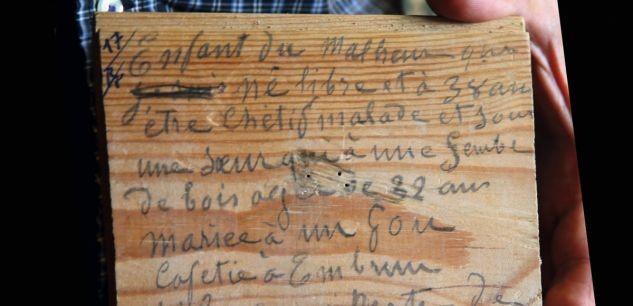 17/
Enfant du malheur que
né libre et à 38 ans
être chetif malade et pour
une sœur qui à une Jembe
de bois agée de 22 ans
mariee à un fou
Cafetié à Embrun
de